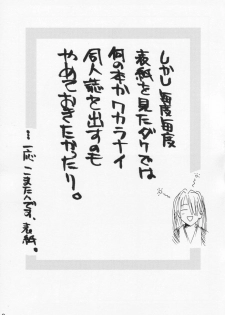 しかし毎度毎度
表紙を見たダケでは
何の本かワカラナイ
同人誌を出すのも
やめておきたかったり。
…一応こまたんです、表紙。